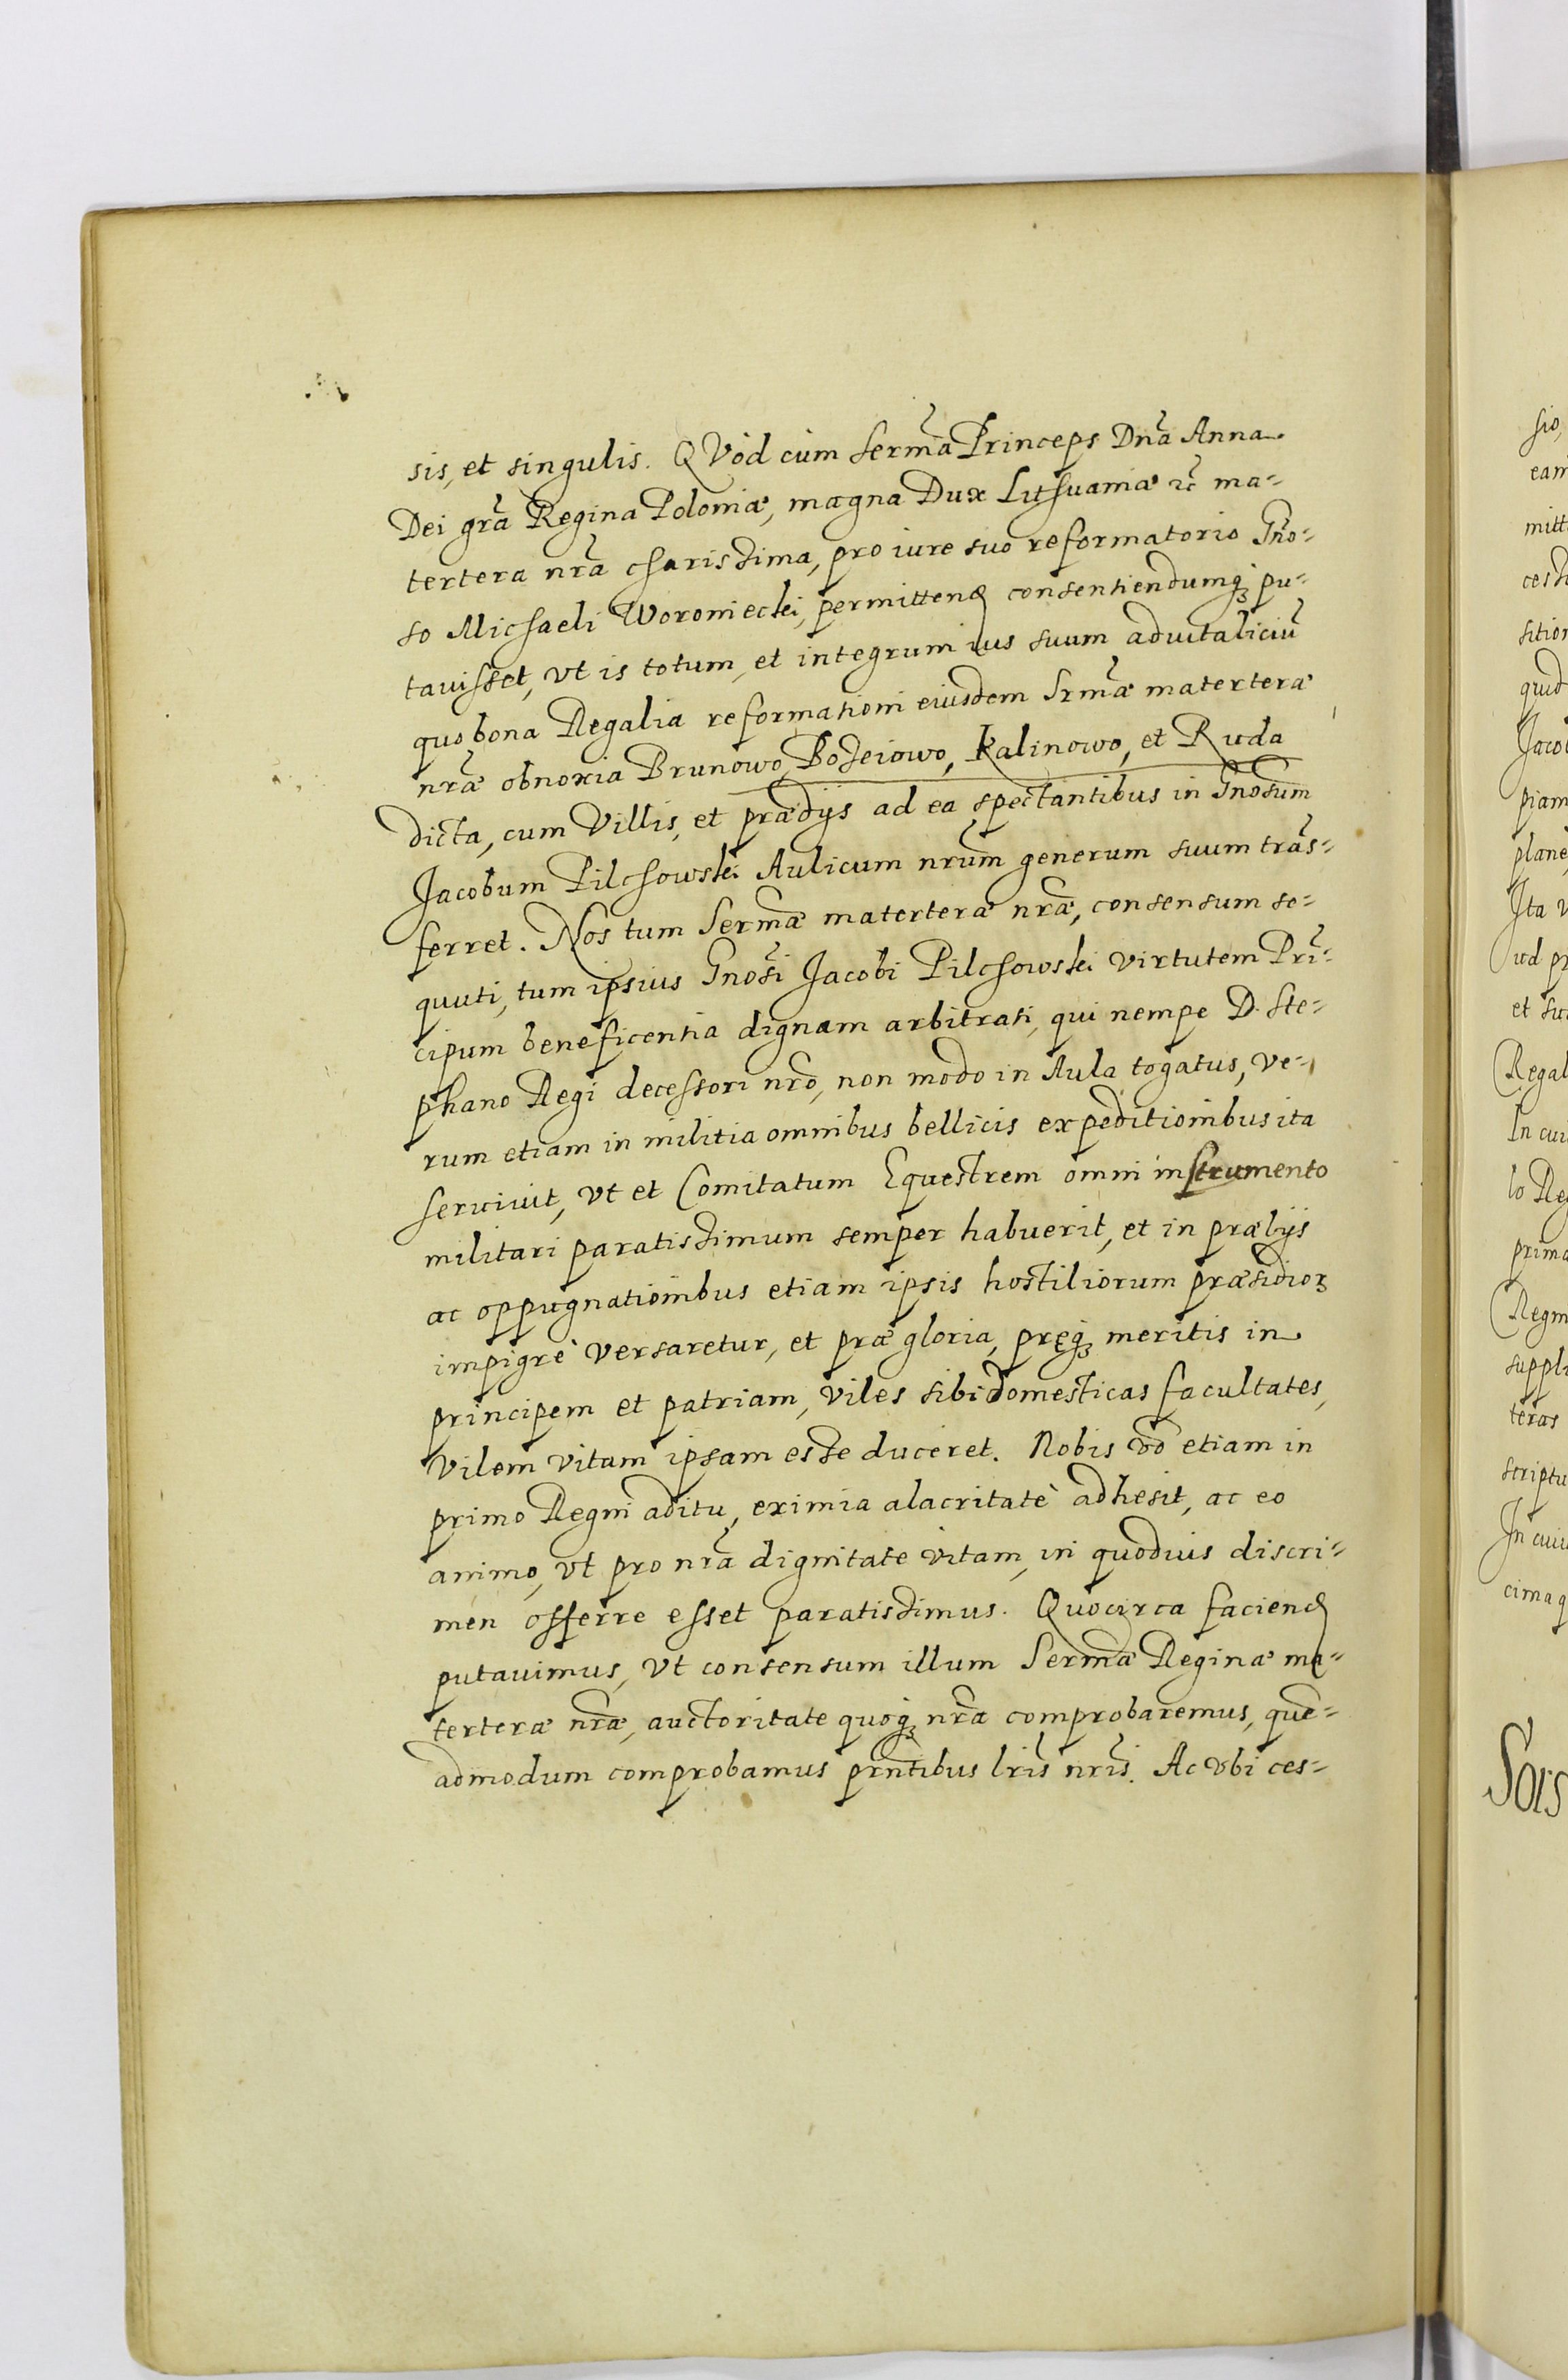 sis, et singulis. QVòd cùm Serma̅ Princeps Dna̅ Anna
Dei gra̅ Regina Poloniæ, magna Dux Lithuaniæ ꝛc̃ ma-
tertera nra̅ charissima, pro iure suo reformatorio Gn̅o-
so Michaeli Woroniecki, permittend consentiendumqꝫ pu-
tauisset, vt is totum, et integrum ius suum aduitaliciu̅
quo bona Regalia reformationi eiusdem Srmæ̅ materteræ
nræ̅ obnoxia Brunowo, Bozeiowo, Kalinowo, et Ruda
dicta, cum Villis, et prædijs ad ea spectantibus in Gnosum̅
Jacobum Pilchowski Aulicum nrum̅ generum suum tra̅s-
ferret. Nos tum Sermæ̅ materteræ nræ̅, consensum se-
quuti, tum ipsius Gnosi̅ Jacobi Pilchowski virtutem Pri̅-
cipum beneficentia dignam arbitrati, qui nempe D. Ste-
phano Regi decessori nro̅, non modo in Aula togatus, ve-
rum etiam in militia omnibus bellicis expeditionibus ita
seruiuit, vt et Comitatum Equestrem omni instrumento
militari paratissimum semper habuerit, et in prælijs
ac oppugnationibus etiam ipsis hostiliorum præsidioꝝ
impigrè versaretur, et præ gloria, pręqꝫ meritis in
principem et patriam, viles sibi domesticas facultates,
vilem vitam ipsam esse duceret. Nobis vo̅ etiam in
primo Regni aditu, eximia alacritatè adhesit, ac eo
animo, vt pro nra̅ dignitate vitam, in quoduis discri-
men offerre esset paratissimus. Quocirca faciend
putauimus, vt consensum illum Sermæ̅ Reginæ ma-
terteræ nræ̅, auctoritate quoqꝫ nra̅ comprobaremus, que̅-
admodum comprobamus prn̅tibus lris̅ nris̅. Ac vbi ces-
sio,
eam
mitt
quid
Jacob
piam
planè
Ita v
vd pr
et su
Regal
In cui
lo Re
prima
Regni
suppli
teras
scriptu
In cuiu
cima q